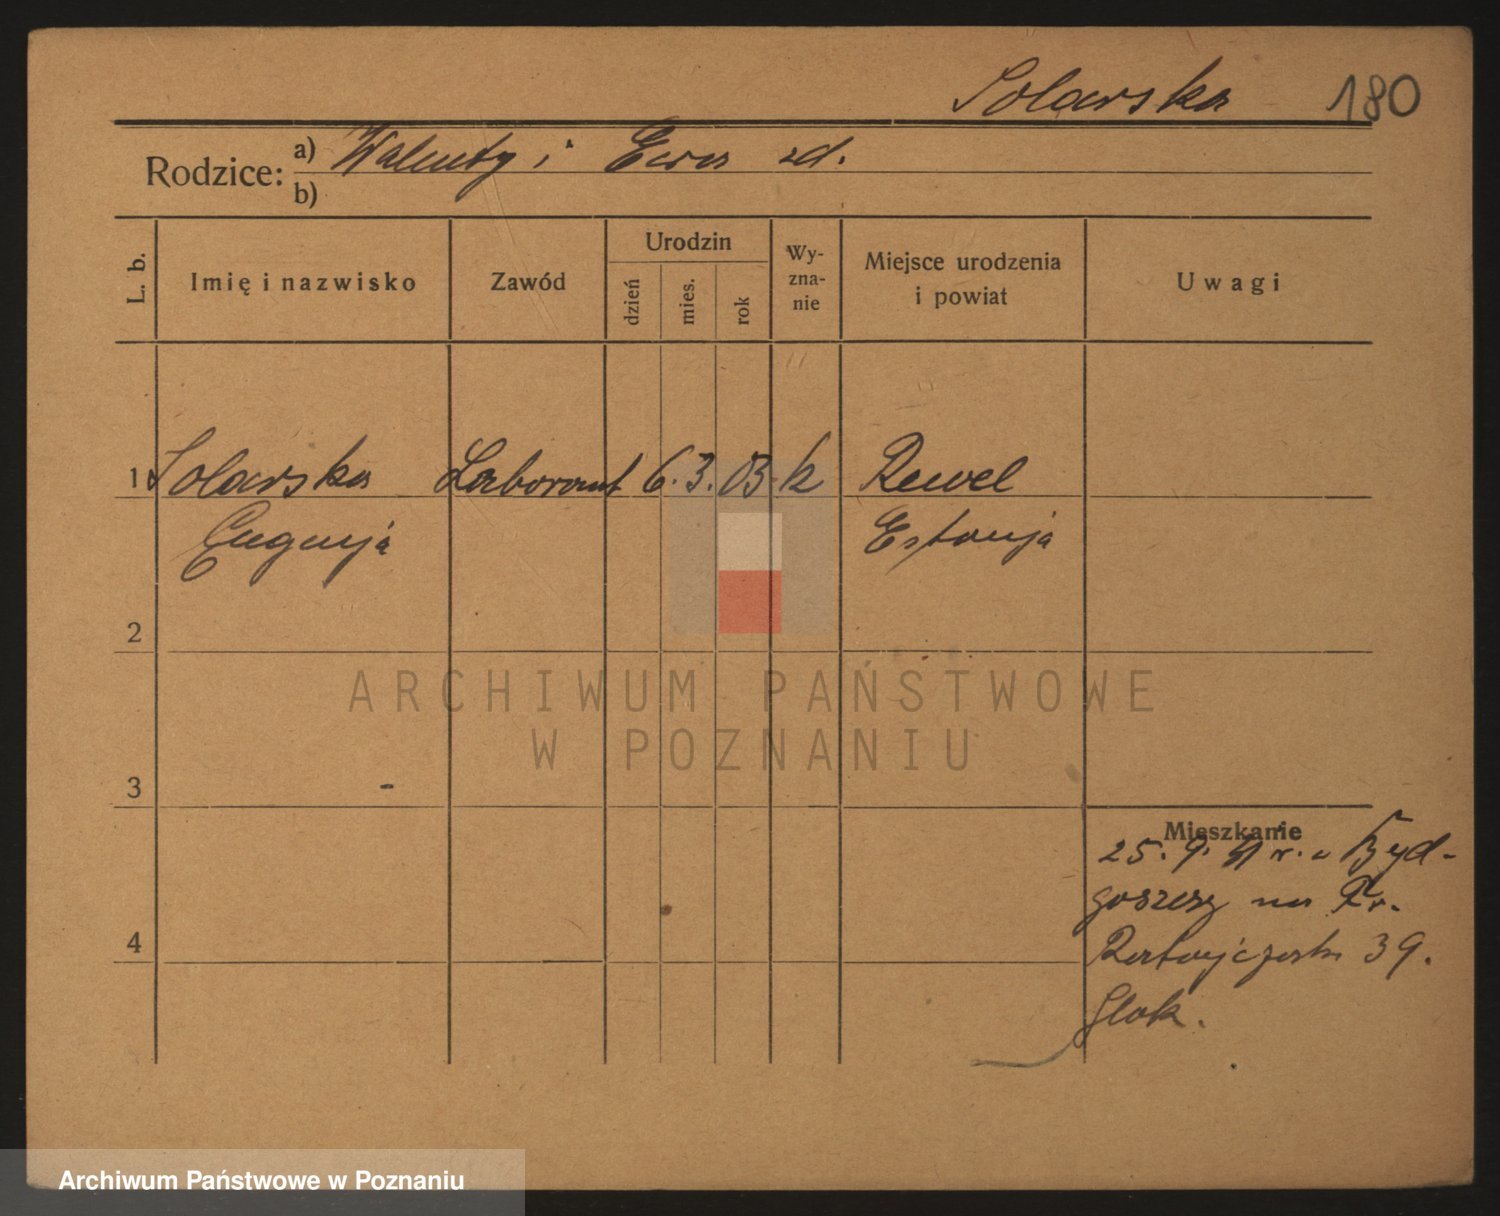 Solarska 180
Rodzice: a) Walenty i Ewa zd.
b)
L. b.
Imię i nazwisko
Zawód
Urodzin
dzień
mies.
rok
Wy-
zna-
nie
Miejsce urodzenia
i powiat
Uwagi
1 Solarska Laborant 6. 3. 03. k Rewel
Eugenja Estonja
2
ARCHIWUM PAŃSTWOWE
W POZNANIU
3
Mieszkanie
25. 9. r. z Byd-
goszczy na Fr.
Ratajczaka 39.
4
Archiwum Państwowe w Poznaniu